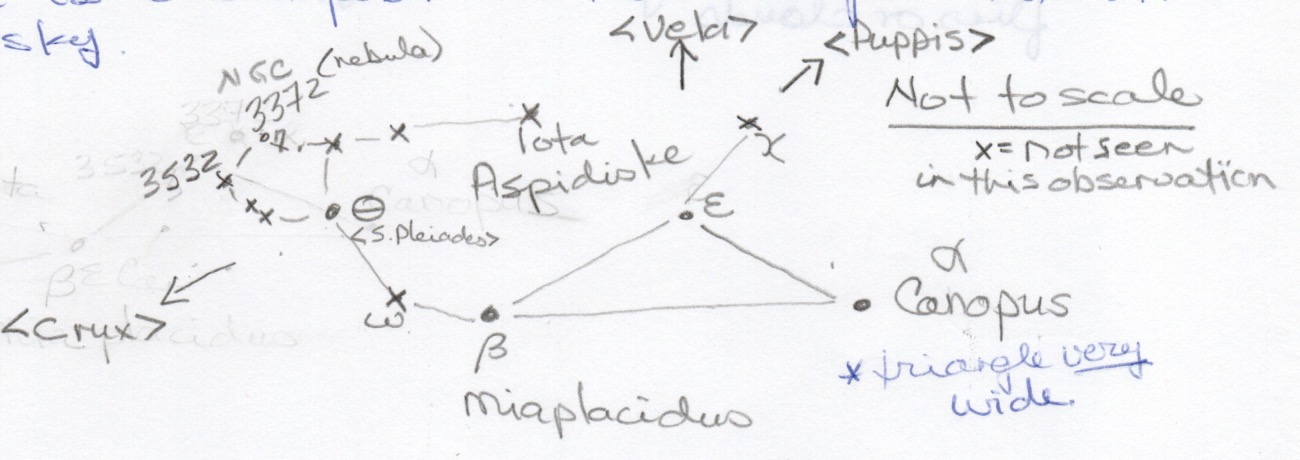 sky.
<Vela>
<Puppis>
NGC
3372 (nebula)
Not to scale
x = not seen
in this observation
3532
Iota
Aspidiske
χ
ε
θ
<S.Pleiades>
α
Canopus
<Crux>
ω
β
Miaplacidus
* triangle very
wide.